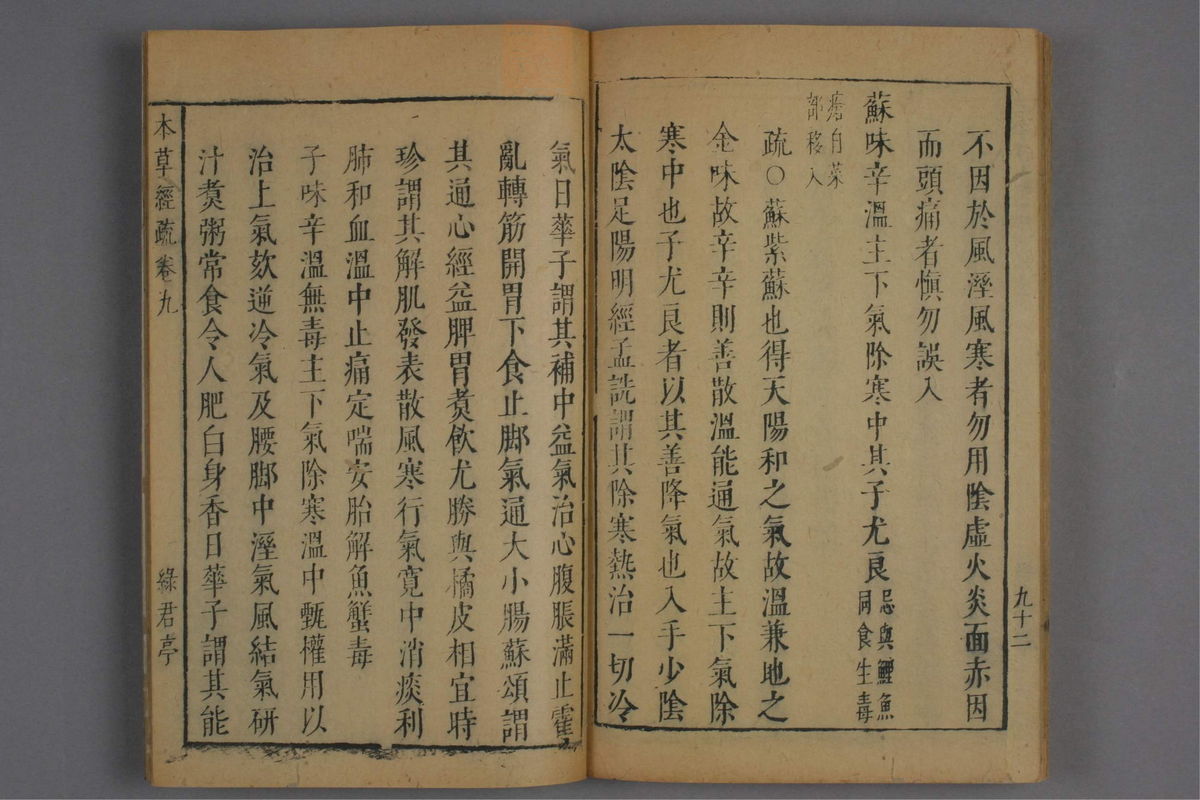 九十二
不因於風溼風寒者勿用陰虛火炎面赤因
而頭痛者慎勿誤入
蘇味辛溫主下氣除寒中其子尤良忌與鯉魚
同食生毒
瘡自菜
部移入
疏○蘇紫蘇也得天陽和之氣故溫兼地之
金味故辛辛則善散溫能通氣故主下氣除
寒中也子尤良者以其善降氣也入手少陰
太陰足陽明經孟詵謂其除寒熱治一切冷
氣日華子謂其補中益氣治心腹脹滿止霍
亂轉筋開胃下食止脚氣通大小腸蘇頌謂
其通心經益脾胃煑飲尤勝與橘皮相宜時
珍謂其解肌發表散風寒行氣寬中消痰利
肺和血溫中止痛定喘安胎解魚蟹毒
子味辛溫無毒主下氣除寒溫中甄權用以
治上氣欬逆冷氣及腰脚中溼氣風結氣研
汁煑粥常食令人肥白身香日華子謂其能
本草經疏卷九
綠君亭